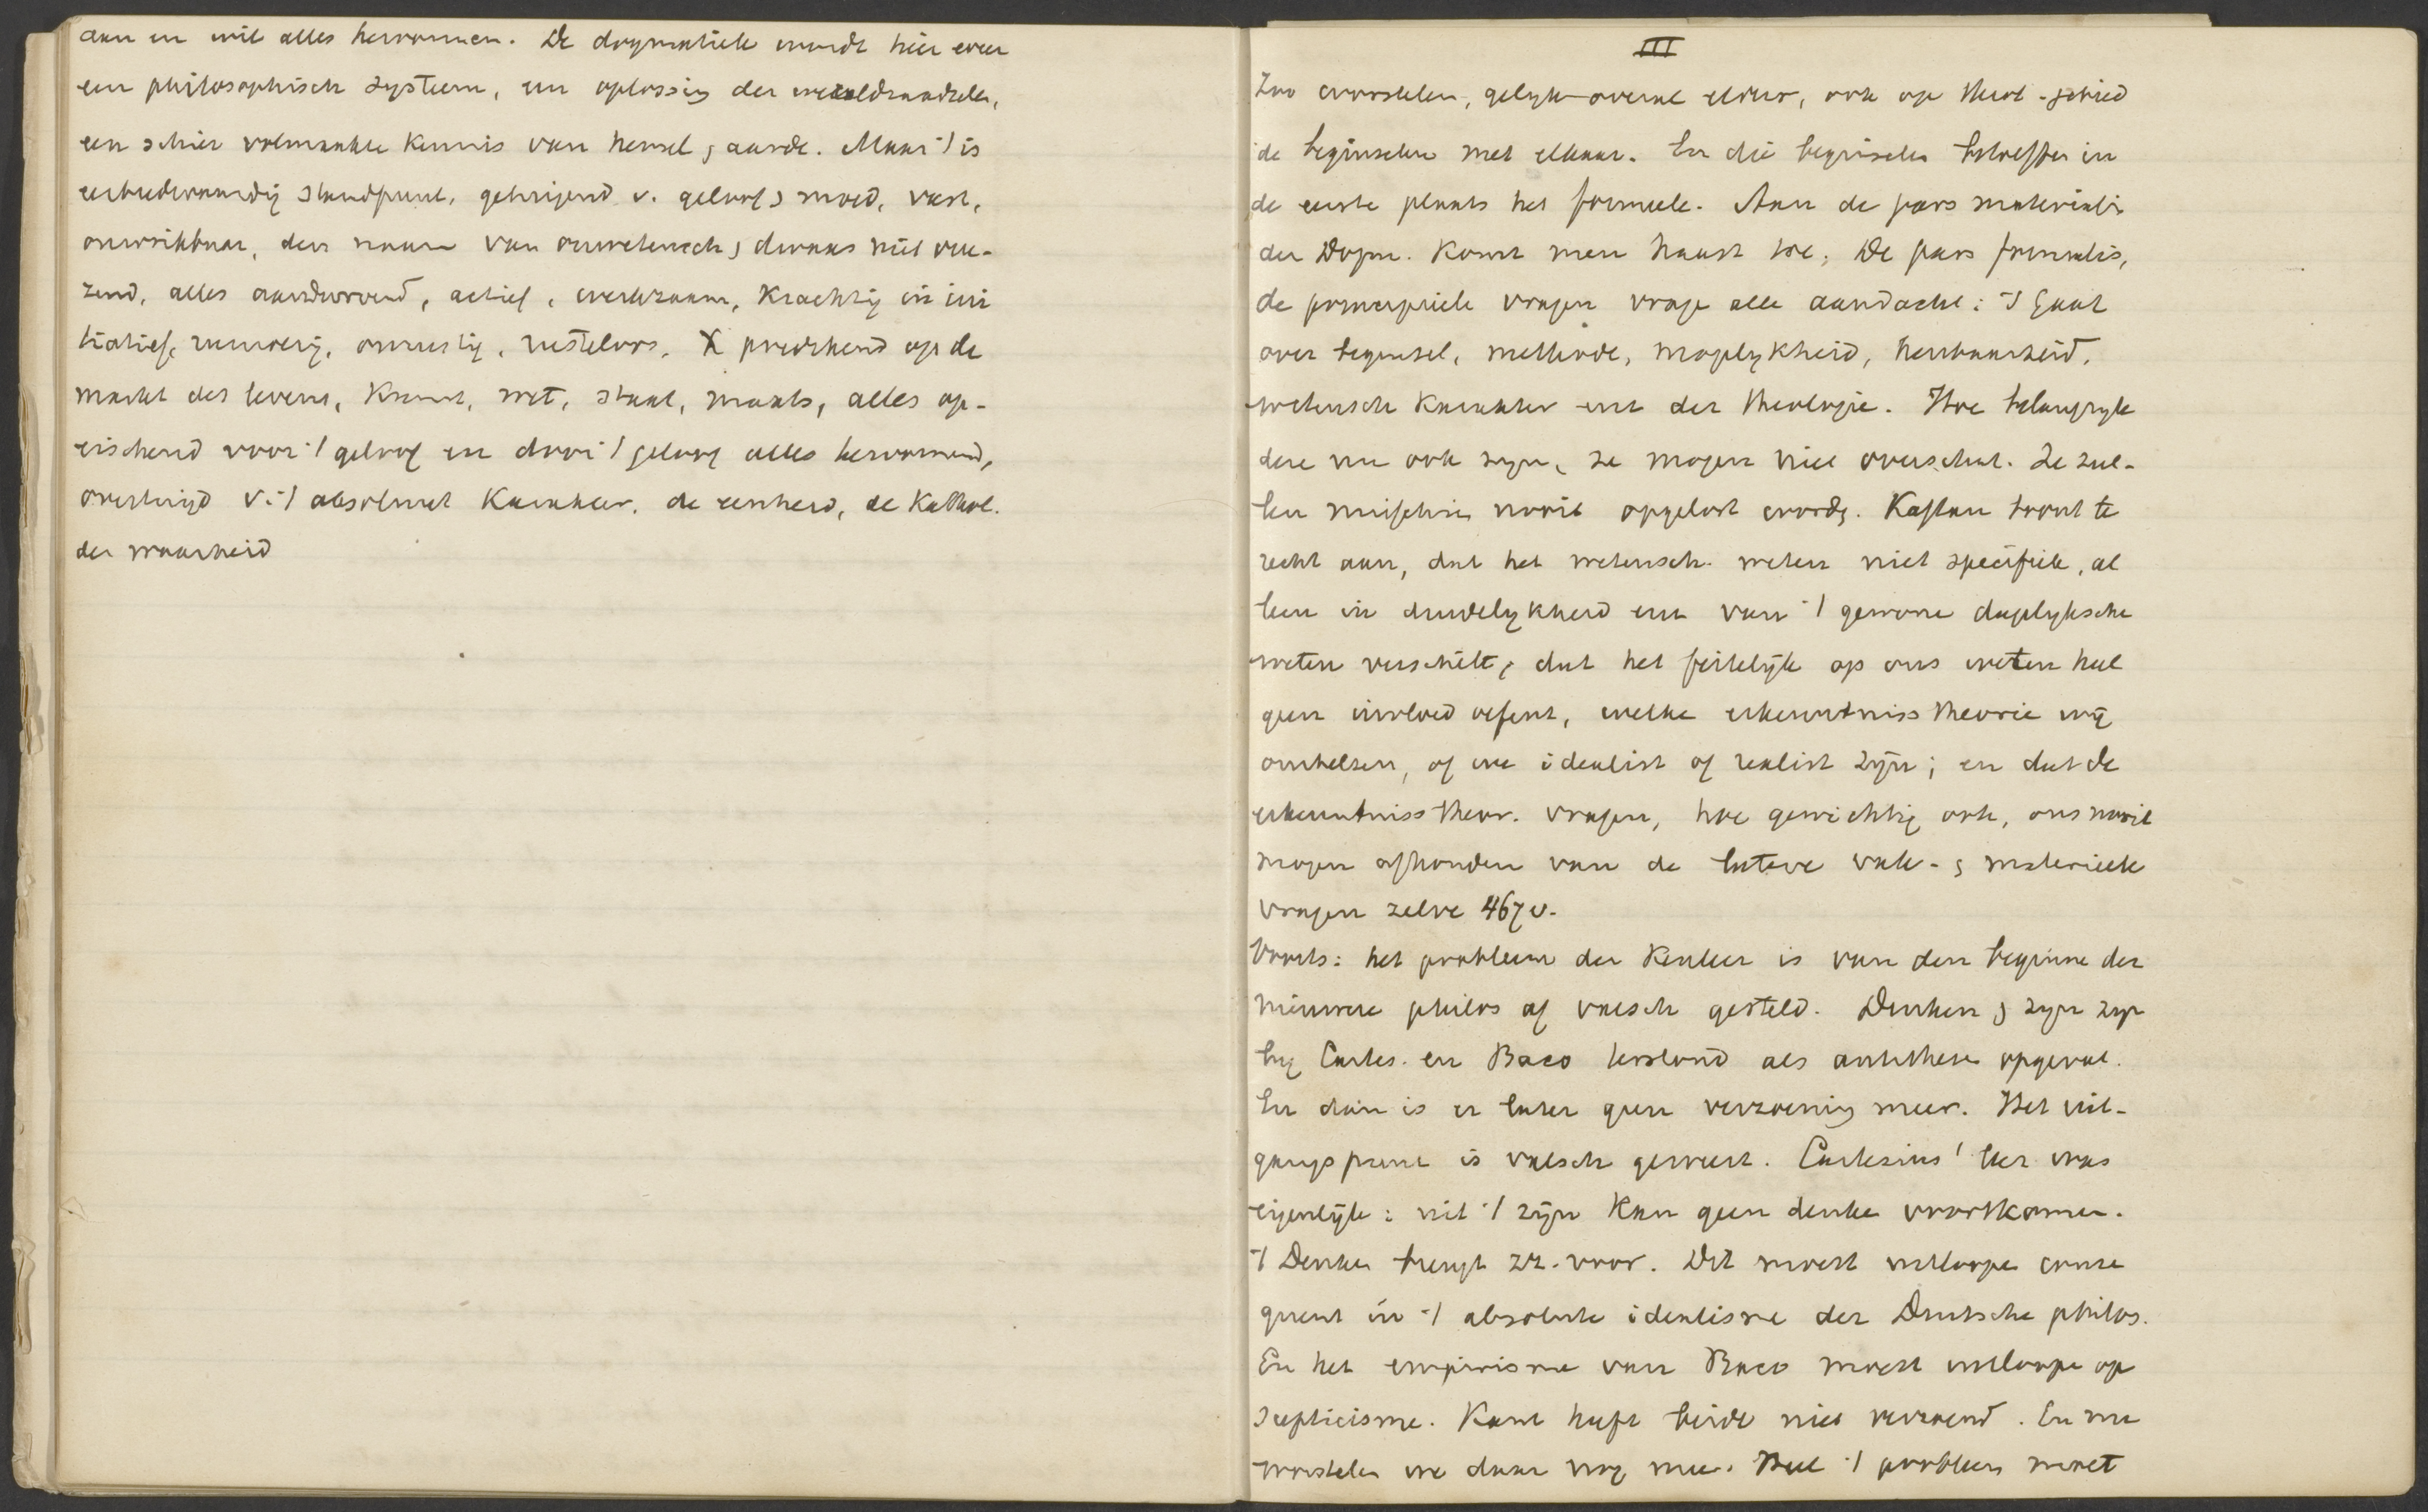 aan en wil alles hervormen. De dogmatiek wordt hier weer
een philosophisch systeem, een oplossing der wereldraadselen,
een schier volmaakte kennis van hemel & aarde. Maar 't is
eerbiedwaardig standpunt, getuigend v. geloof & moed, vast,
onwrikbaar, den naam van onwetensch & dwaas niet vree-
zend, alles aandurvend, actief, werkzaam, krachtig in ini
tiatief, rumoerig, onrustig, rusteloos, predikend op de
markt des levens, Kunst, wet, staat, maats, alles op-
eischend voor 't geloof en door 't geloof alles hervormend,
overtuigd v. 't absoluut karakter, de eenheid, de Kathol.
der waarheid
III
Zoo worstelen, gelijk overal elders, ook op theol-gebied
de beginselen met elkaar. En die beginselen betreffen in
de eerste plaats het formeele. Aan de pars materialis
der Dogm. komt men haast toe. De pars formalis,
de principieele vragen vrage alle aandacht: 't gaat
over beginsel, methode, mogelijkheid, kenbaarheid,
wetensch karakter enz der theologie. Hoe belangrijk
deze nu ook zijn, ze mogen niet overschat. Ze zul-
len misschien nooit opgelost word. Kaftan toont te
recht aan, dat het wetensch. weten niet specifiek, al
leen in duidelijkheid enz van 't gewone dagelijksche
weten verschilt, dat het feitelijk op ons weten heel
geen invloed oefent, welke erkenntniss theorie wij
omhelzen, of we idealist of realist zijn; en dat de
erkenntniss theor. vragen, hoe gewichtig ook, ons nooit
mogen afhouden van de latere vak- & materieele
vragen zelve 467 v.
Voorts: het probleem der Kenleer is van den beginne der
nieuwere philos af valsch gesteld. Denken & zijn zijn
bij Cartes. en Baco terstond als antithese opgevat.
En dan is er later geen verzoening meer. Het uit-
gangspunt is valsch geweest. Cartesius' leer was
eigenlijk: uit 't zijn kan geen denke voortkomen.
't Denken brengt zz. voor. Dit moest uitloope conse
quent in 't absolute idealisme der Duitsche philos.
En het empirisme van Baco moest uitloope op
scepticisme. Kant heeft beide niet verzoend. En nu
worstelen we daar nog mee. Heel 't probleem moet